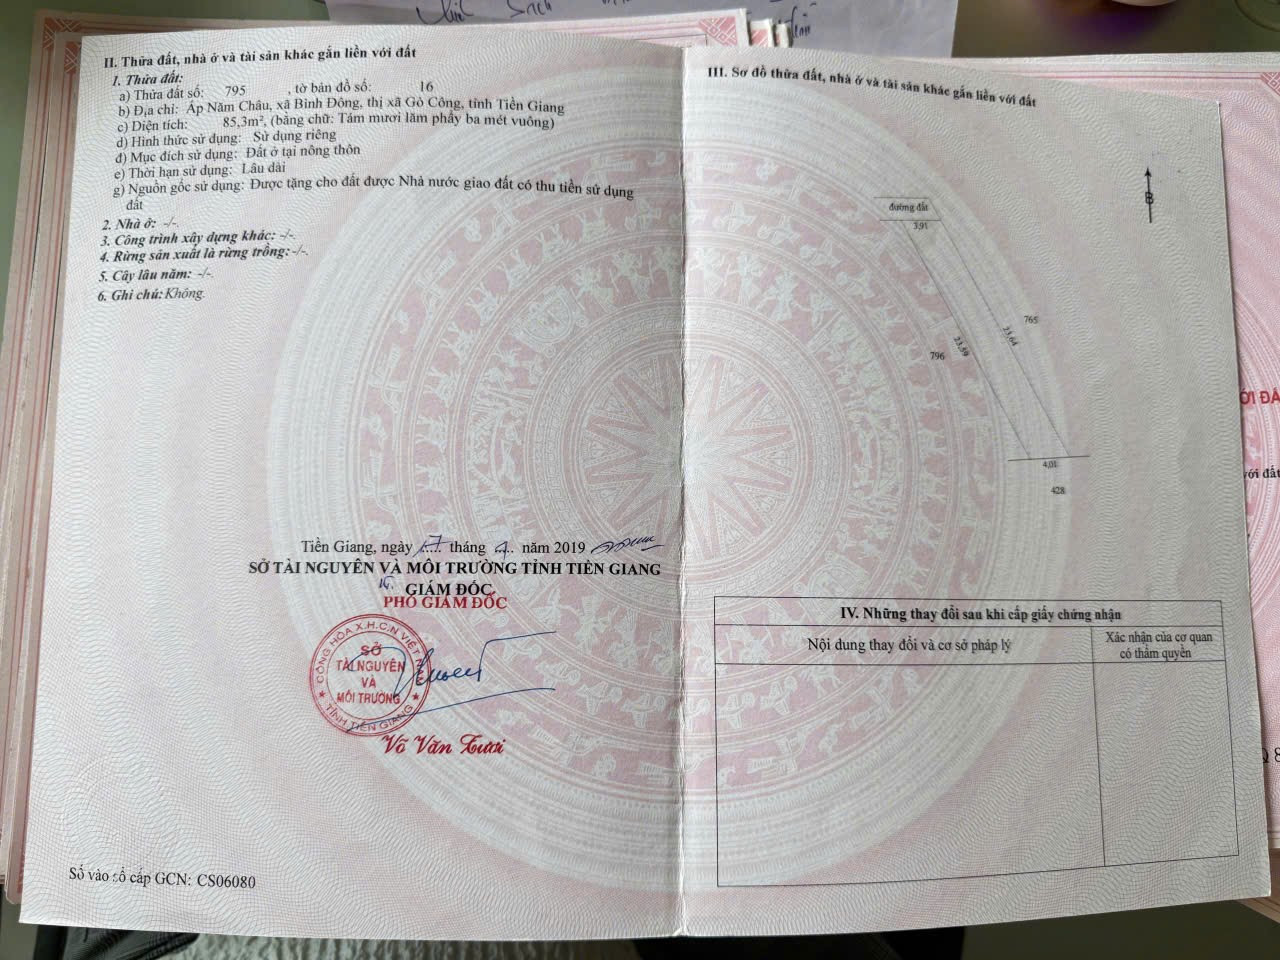 II. Thửa đất, nhà ở và tài sản khác gắn liền với đất
1. Thửa đất:
a) Thửa đất số: 795 , tờ bản đồ số: 16
b) Địa chỉ: Ấp Năm Châu, xã Bình Đông, thị xã Gò Công, tỉnh Tiền Giang
c) Diện tích: 85,3m², (bằng chữ: Tám mươi lăm phẩy ba mét vuông)
d) Hình thức sử dụng: Sử dụng riêng
đ) Mục đích sử dụng: Đất ở tại nông thôn
e) Thời hạn sử dụng: Lâu dài
g) Nguồn gốc sử dụng: Được tặng cho đất được Nhà nước giao đất có thu tiền sử dụng
đất
2. Nhà ở: -/-.
3. Công trình xây dựng khác: -/-.
4. Rừng sản xuất là rừng trồng: -/-.
5. Cây lâu năm: -/-.
6. Ghi chú: Không.
Tiền Giang, ngày 17 tháng 4 năm 2019
SỞ TÀI NGUYÊN VÀ MÔI TRƯỜNG TỈNH TIỀN GIANG
GIÁM ĐỐC
PHÓ GIÁM ĐỐC
CỘNG HÒA X.H.C.N VIỆT NAM
SỞ
TÀI NGUYÊN
VÀ
MÔI TRƯỜNG
TỈNH TIỀN GIANG
Võ Văn Tươi
Số vào sổ cấp GCN: CS06080
III. Sơ đồ thửa đất, nhà ở và tài sản khác gắn liền với đất
B
đường đất
3,91
765
23,64
23,59
796
4,01
428
IV. Những thay đổi sau khi cấp giấy chứng nhận
Nội dung thay đổi và cơ sở pháp lý
Xác nhận của cơ quan
có thẩm quyền
với đất